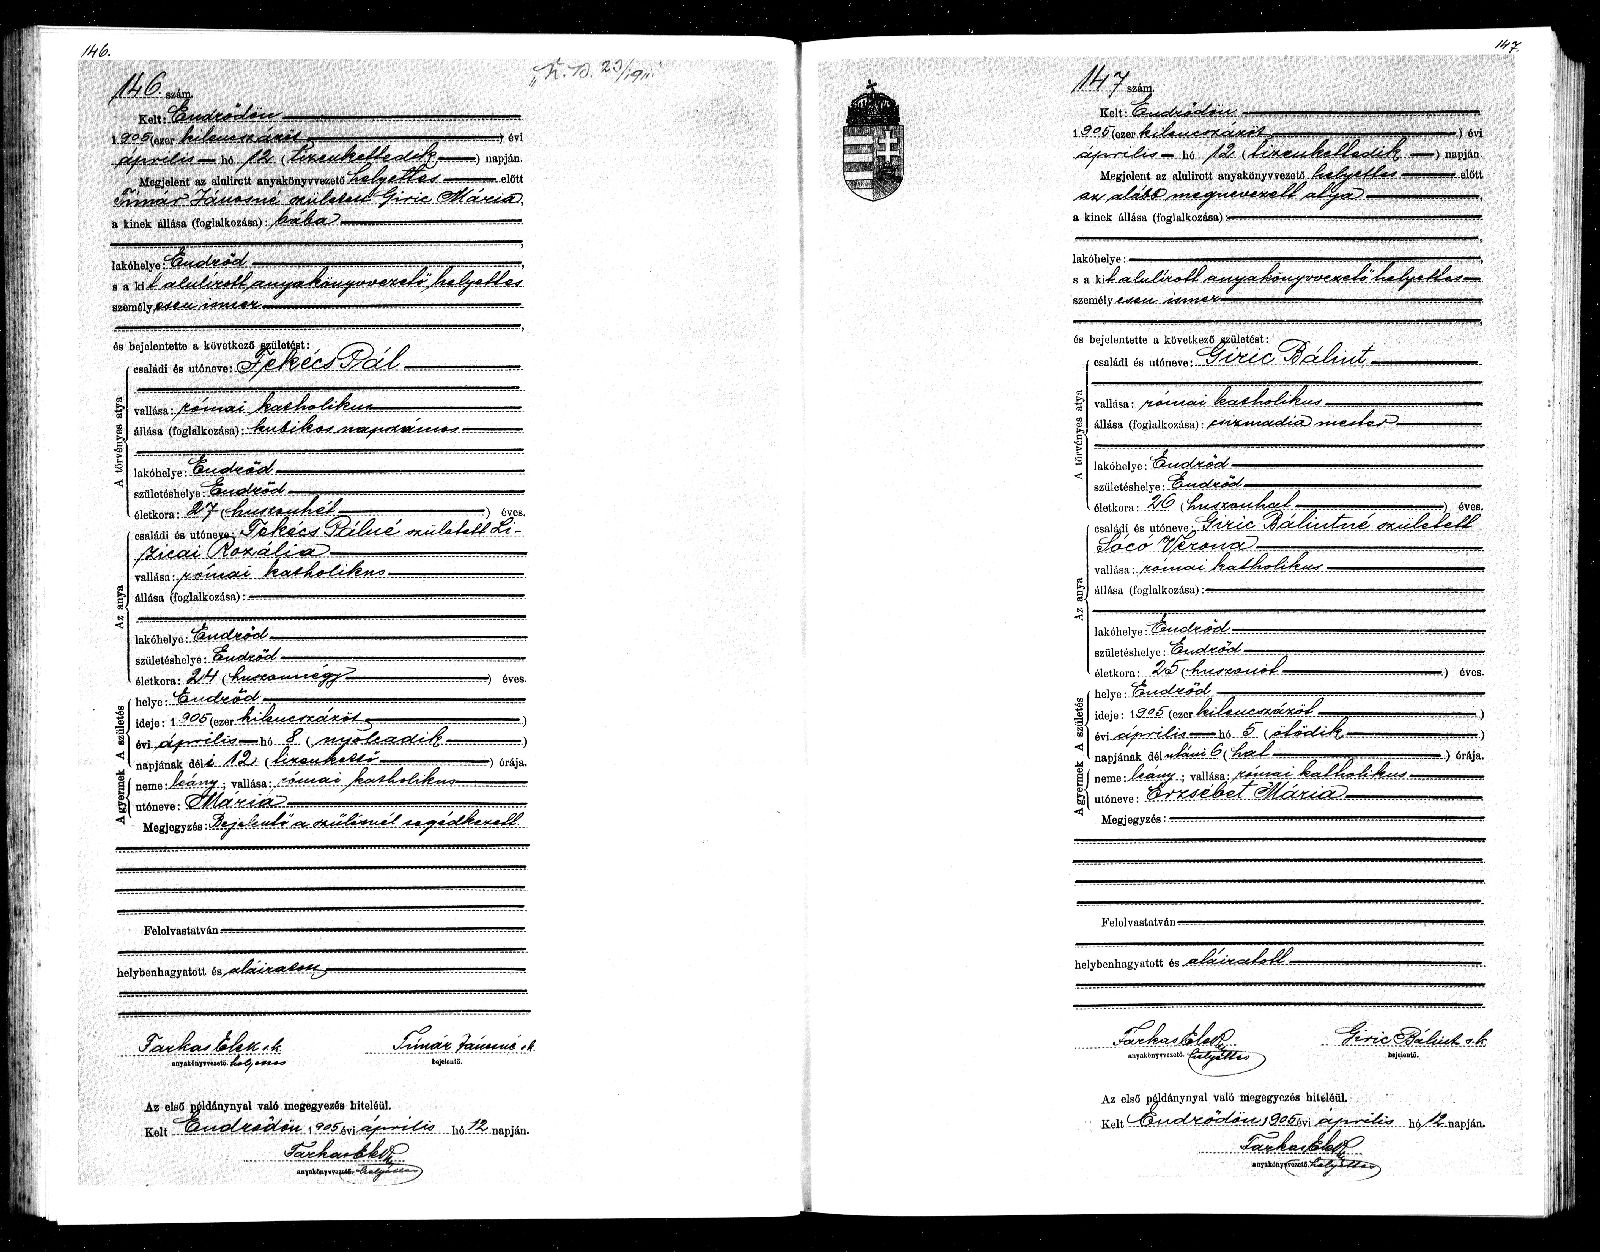 146.
146. szám.
Kelt: Endrődön
1905 (ezer kilenczszázöt) évi
április hó 12 (tizenkettedik) napján.
Megjelent az alulirott anyakönyvvezető helyettes előtt
Timár Jánosné született Giric Mária,
a kinek állása (foglalkozása): bába
lakóhelye: Endrőd
s a kit alulírott anyakönyvvezető helyettes
személyesen ismer
és bejelentette a következő születést:
A törvényes atya
családi és utóneve: Fekécs Pál
vallása: római katholikus
állása (foglalkozása): kubikos napszámos
lakóhelye: Endrőd
születéshelye: Endrőd
életkora: 27 (huszonhét) éves.
Az anya
családi és utóneve: Fekécs Pálné született Li-
ziczai Rozália
vallása: római katholikus
állása (foglalkozása):
lakóhelye: Endrőd
születéshelye: Endrőd
életkora: 24 (huszonnégy) éves.
A születés
helye: Endrőd
ideje: 1905 (ezer kilenczszázöt)
évi április hó 8 (nyolcadik)
napjának déli 12 (tizenkettő) órája.
A gyermek
neme: leány; vallása: római katholikus
utóneve: Mária
Megjegyzés: Bejelentő a szülésnél segédkezett
Felolvastatván
helybenhagyatott és aláiratott
Farkas Elek s.k. Timár Jánosné s.k.
anyakönyvvezető. helyettes bejelentő.
Az első példánynyal való megegyezés hiteléül.
Kelt Endrődön 1905 évi április hó 12 napján.
Farkas Elek
anyakönyvvezető. helyettes
147.
147 szám.
Kelt: Endrődön
1905 (ezer kilenczszázöt) évi
április hó 12 (tizenkettedik) napján
Megjelent az alulirott anyakönyvvezető helyettes előtt
az alább megnevezett atya
a kinek állása (foglalkozása):
lakóhelye:
s a kit alulírott anyakönyvvezető helyettes
személyesen ismer
és bejelentette a következő születést:
A törvényes atya
családi és utóneve: Giric Bálint
vallása: római katholikus
állása (foglalkozása): csizmadia mester
lakóhelye: Endrőd
születéshelye: Endrőd
életkora: 26 (huszonhat) éves.
Az anya
családi és utóneve: Giric Bálintné született
Sóczó Verona
vallása: római katholikus
állása (foglalkozása):
lakóhelye: Endrőd
születéshelye: Endrőd
életkora: 25 (huszonöt) éves.
A születés
helye: Endrőd
ideje: 1905 (ezer kilenczszázöt)
évi április hó 5 (ötödik)
napjának délutáni 6 (hat) órája.
A gyermek
neme: leány; vallása: római katholikus
utóneve: Erzsébet Mária
Megjegyzés:
Felolvastatván
helybenhagyatott és aláiratott
Farkas Elek Giric Bálint s.k.
anyakönyvvezető. helyettes bejelentő.
Az első példánynyal való megegyezés hiteléül.
Kelt Endrődön 1905 évi április hó 12 napján.
Farkas Elek
anyakönyvvezető. helyettes